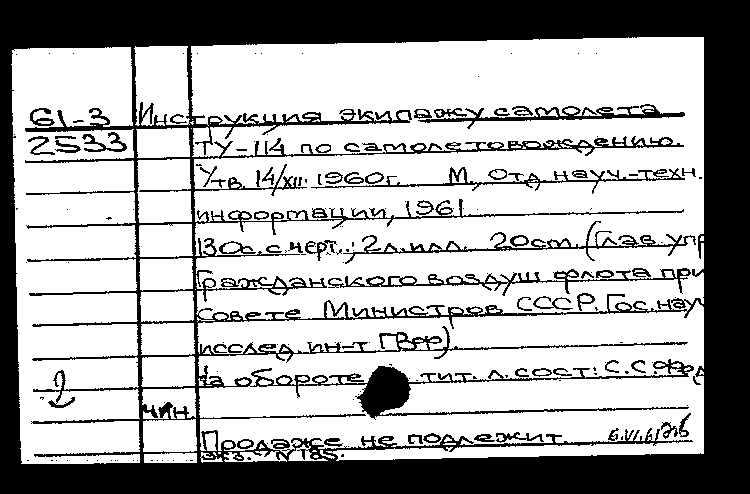 61-3 Инструкция экипажу самолета
2533 ТУ-114 по самолетовождению.
Утв. 14/XII. 1960г. М., Отд. науч.-техн.
информации, 1961.
130с. с черт.; 2л. илл. 20см. (Глав. упр
Гражданского воздуш флота при
Совете Министров СССР. Гос. науч
исслед. ин-т ГВФ).
На обороте тит. л. сост: С.С. Фед
2
чин.
Продаже не подлежит.
экз. №185.